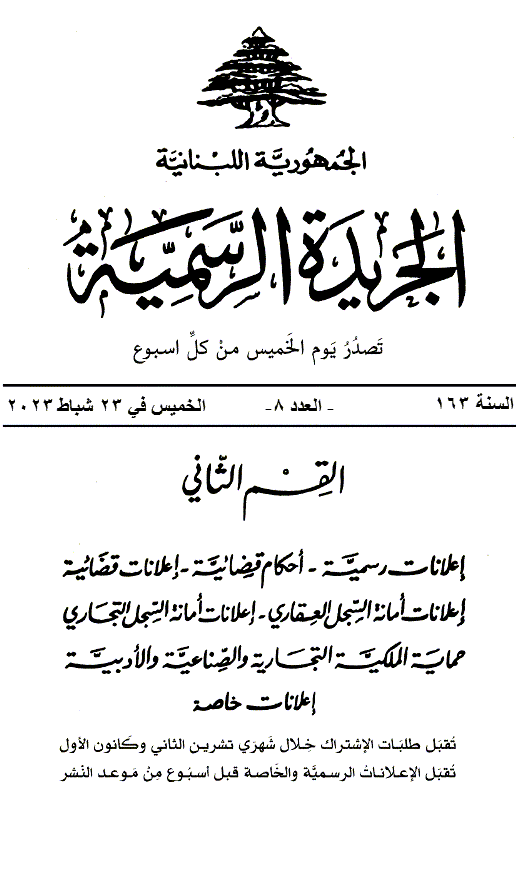 الجمهوريَّة اللبْنانيَّة
الجَريدَة الرَّسمِيَّة
تَصدُرُ يَوم الخَميس منْ كلِّ اسبوع
السنة ١٦٣ - العدد ٨- الخميس في ٢٣ شباط ٢٠٢٣
القِسْم الثّاني
إعلانات رسميَّة - أحكام قضائيَّة - إعلانات قضائية
إعلانات أمانة السِّجل العقاري - إعلانات أمانة السِّجل التجاري
حماية الملكيَّة التجارية والصِّناعيَّة والأدبيَّة
إعلانات خاصة
تُقبَل طلبَات الإشتراك خِلال شَهرَي تشرين الثاني وكَانون الأول
تُقبَل الإعلاناتُ الرسميَّة والخَاصة قبل أسبُوع مِنْ مَوعد النَشر